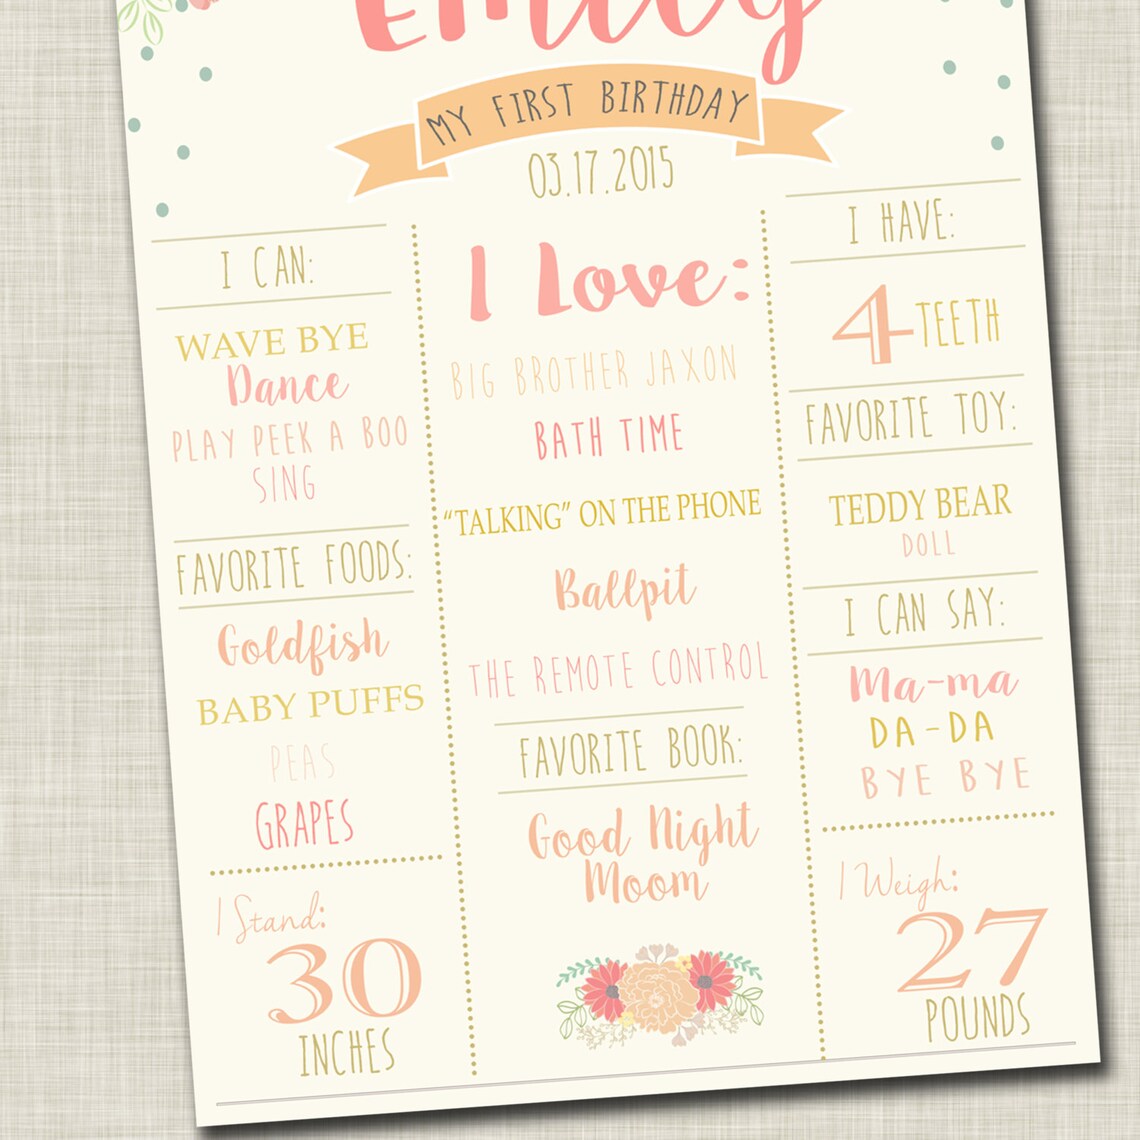 Emily
MY FIRST BIRTHDAY
03.17.2015
I CAN:
WAVE BYE
Dance
PLAY PEEK A BOO
SING
FAVORITE FOODS:
Goldfish
BABY PUFFS
PEAS
GRAPES
I Stand:
30
INCHES
I Love:
BIG BROTHER JAXON
BATH TIME
“TALKING” ON THE PHONE
Ballpit
THE REMOTE CONTROL
FAVORITE BOOK:
Good Night
Moom
I HAVE:
4 TEETH
FAVORITE TOY:
TEDDY BEAR
DOLL
I CAN SAY:
Ma-ma
DA-DA
BYE BYE
I Weigh:
27
POUNDS